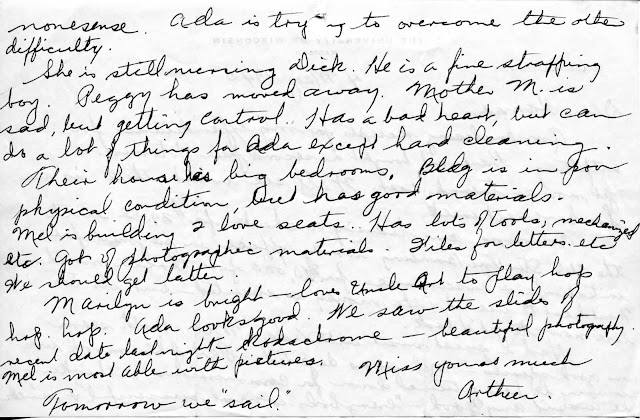 nonesense. Ada is trying to overcome the other
difficulty.
She is still nursing Dick. He is a fine strapping
boy. Peggy has moved away. Mother M. is
sad, but getting control. Has a bad heart, but can
do a lot of things for Ada except hard cleaning.
Their house has big bedrooms. Bldg is in poor
physical condition, but has good materials.
Mel is building 2 love seats. Has lots of tools, mechanized
etc. Got of photographic materials. Files for letters. etc
We should get latter.
Marilyn is bright — loves Uncle Art to play hop
hop. hop. Ada looks good. We saw the slides of
recent date last night Kodachrome — beautiful photography.
Mel is most able with pictures.
Miss you so much
Arthur.
Tomorrow we "sail."